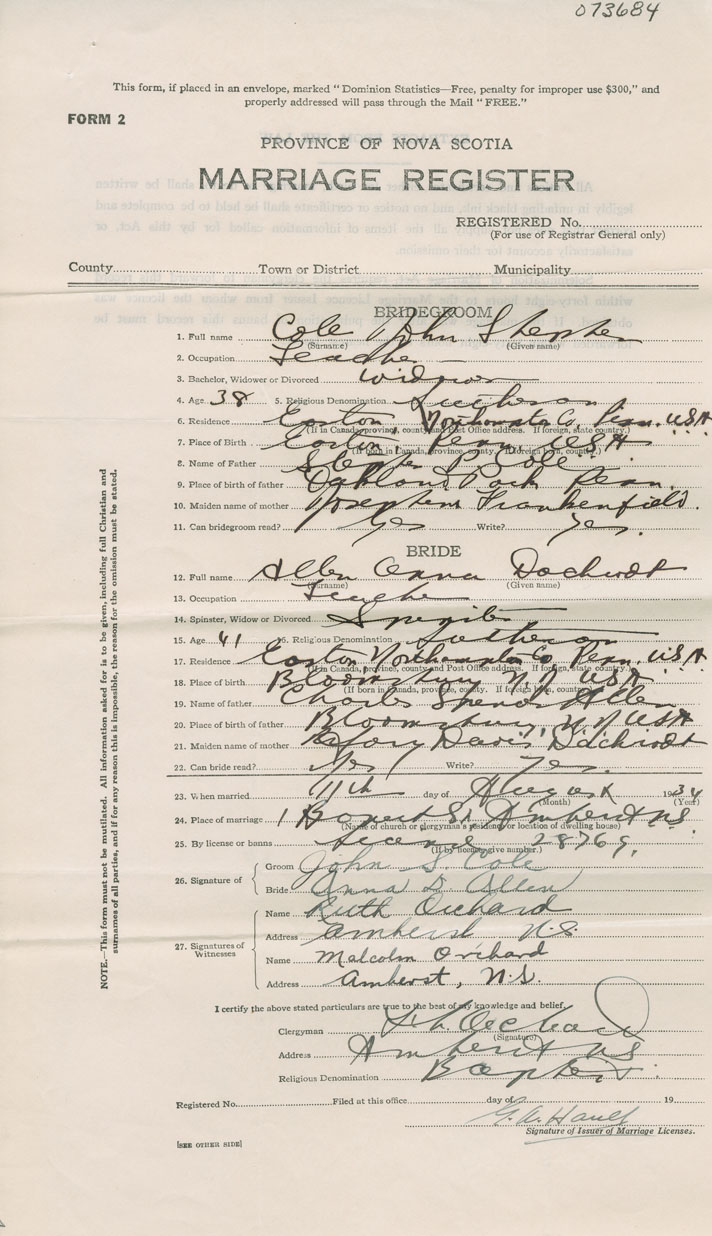 073684
This form, if placed in an envelope, marked "Dominion Statistics—Free, penalty for improper use $300," and
properly addressed will pass through the Mail "FREE."
FORM 2
PROVINCE OF NOVA SCOTIA
MARRIAGE REGISTER
REGISTERED No.
(For use of Registrar General only)
County Town or District Municipality
BRIDEGROOM
1. Full name Cole John Stephen
(Surname) (Given name)
2. Occupation Teacher
3. Bachelor, Widower or Divorced Widower
4. Age 38 5. Religious Denomination Lutheran
6. Residence Easton Northampton Co. Penn. USA
(If in Canada, province, county and Post Office address. If foreign, state country.)
7. Place of Birth Easton, Penn, USA
(If born in Canada, province, county. If foreign born, country.)
8. Name of Father Stephen Cole
9. Place of birth of father Oakland Park Penn.
10. Maiden name of mother Josephine Frankenfield.
11. Can bridegroom read? Yes Write? Yes.
BRIDE
12. Full name Allen Anna
(Surname) (Given name)
13. Occupation Teacher
14. Spinster, Widow or Divorced Spinster
15. Age 41 16. Religious Denomination Lutheran
17. Residence Easton Northampton Co Penn. USA
(If in Canada, province, county and Post Office address. If foreign, state country.)
18. Place of birth Bloomsbury N.J. USA
(If born in Canada, province, county. If foreign born, country.)
19. Name of father Charles Allen
20. Place of birth of father Bloomsbury N.J USA
21. Maiden name of mother Davis
22. Can bride read? Yes Write? Yes.
23. When married 11th day of August 1934
(Month) (Year)
24. Place of marriage 1 Rupert St. Amherst N.S.
(Name of church or clergyman's residence or location of dwelling house)
25. By license or banns License 28769.
(If by license, give number.)
26. Signature of Groom John S. Cole
Bride Anna D. Allen
27. Signatures of Witnesses
Name Ruth Orchard
Address Amherst N.S.
Name Malcolm Orchard
Address Amherst, N.S.
I certify the above stated particulars are true to the best of my knowledge and belief.
Clergyman Orchard
(Signature)
Address Amherst NS
Religious Denomination Baptist
Registered No. Filed at this office day of 19
G. W.
Signature of Issuer of Marriage Licenses.
[SEE OTHER SIDE]
NOTE.—This form must not be mutilated. All information asked for is to be given, including full Christian and
surnames of all parties, and if for any reason this is impossible, the reason for the omission must be stated.